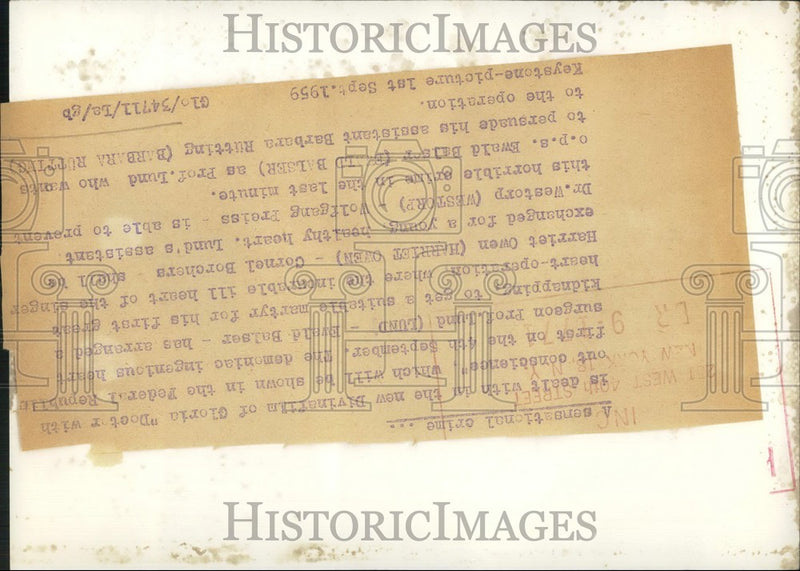 HISTORICIMAGES
A sensational crime ...
is dealt with in the new Divinafilm of Gloria "Doctor with
out conscience" which will be shown in the Federal Republic
first on the 4th September. The demoniac ingenious heart
surgeon Prof.Lund (LUND - Ewald Balser - has arranged a
Kidnapping to get a suitable martyr for his first great
heart-operation where the incurable ill heart of the singer
Harriet Owen (HARRIET OWEN) - Cornel Borchers shall be
exchanged for a young, healthy heart. Lund's assistant
Dr.Westorp (WESTORP) - Wolfgang Preiss - is able to prevent
this horrible crime in the last minute.
o.p.s. Ewald Balser (EWALD BALSER) as Prof.Lund who wants
to persuade his assistant Barbara Rütting (BARBARA RÜTTING)
to the operation.
Keystone-picture 1st Sept.1959 Glo/34711/La/gb
INC
211 WEST STREET
NEW YORK N. Y.
HISTORICIMAGES